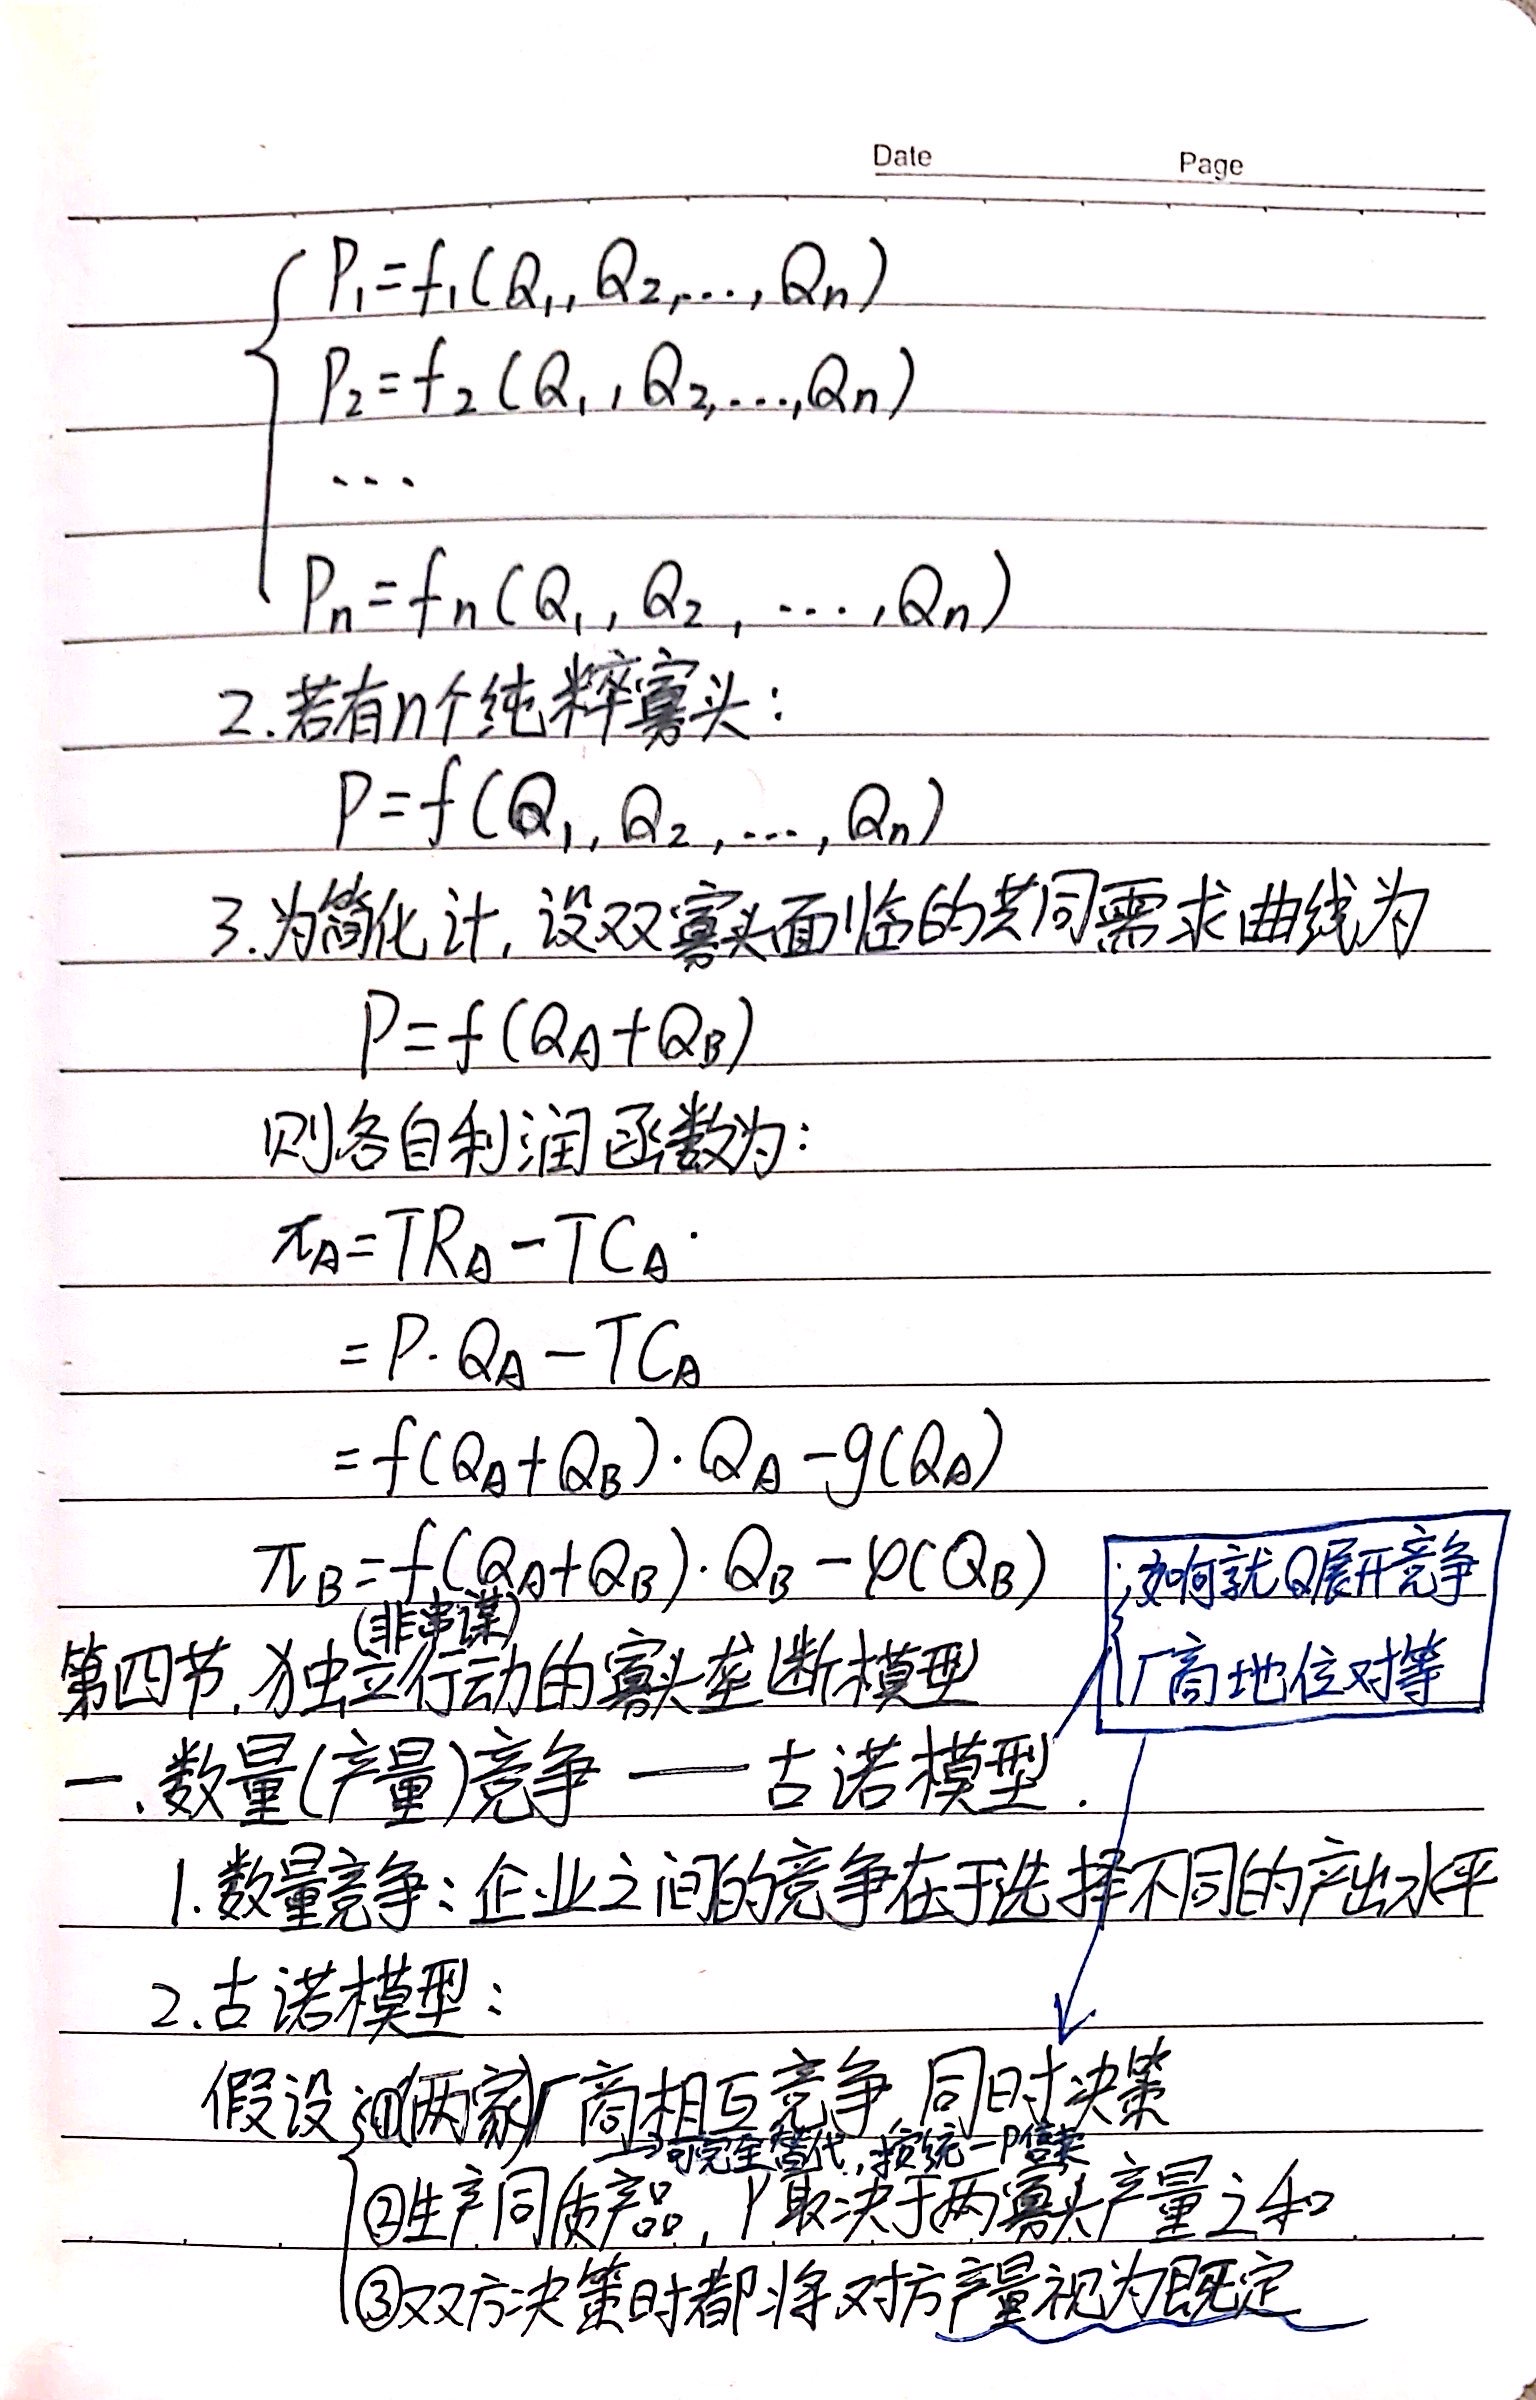 Date Page
P₁=f₁(Q₁,Q₂,...,Qn)
P₂=f₂(Q₁,Q₂,...,Qn)
...
Pn=fn(Q₁,Q₂,....,Qn)
2.若有n个纯粹寡头:
P=f(Q₁,Q₂,...,Qn)
3.为简化计,设双寡头面临的共同需求曲线为
P=f(QA+QB)
则各自利润函数为:
πA=TRA-TCA
=P·QA-TCA
=f(QA+QB)·QA-g(QA)
πB=f(QA+QB)·QB-φ(QB)
如何就Q展开竞争
(非串谋)
第四节.独立行动的寡头垄断模型
厂商地位对等
一.数量(产量)竞争——古诺模型.
1.数量竞争:企业之间的竞争在于选择不同的产出水平
2.古诺模型:
假设:①(两家)厂商相互竞争,同时决策
→可完全替代,按统一P售卖
②生产同质产品,P取决于两寡头产量之和
③双方决策时都将对方产量视为既定